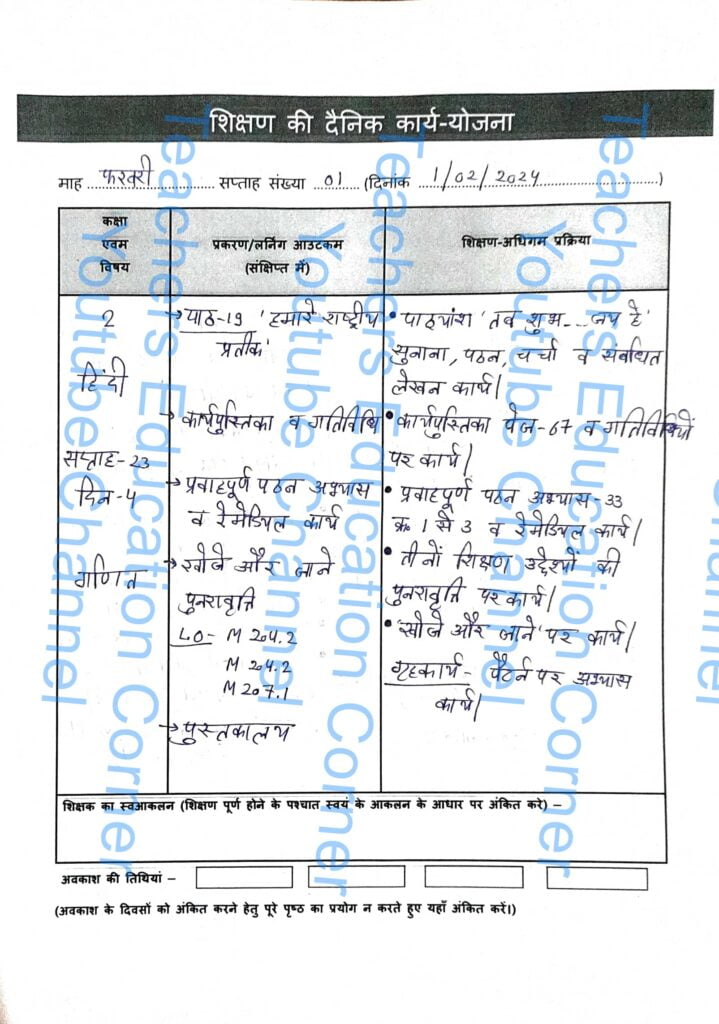 शिक्षण की दैनिक कार्य-योजना
माह फरवरी सप्ताह संख्या 01 (दिनांक 1/02/2024)
कक्षा
एवम
विषय
प्रकरण/लर्निंग आउटकम
(संक्षिप्त में)
शिक्षण-अधिगम प्रक्रिया
2
हिंदी
सप्ताह-23
दिन-4
गणित
→पाठ-19 'हमारे राष्ट्रीय
प्रतीक'
→कार्यपुस्तिका व गतिविधि
→प्रवाहपूर्ण पठन अभ्यास
व रेमेडियल कार्य
→खोजे और जाने
पुनरावृत्ति
LO- M 204.2
M 204.2
M 207.1
→पुस्तकालय
• पाठ्यांश 'तव शुभ...जय हे'
सुनाना, पठन, चर्चा व संबंधित
लेखन कार्य।
• कार्यपुस्तिका पेज-67 व गतिविधियों
पर कार्य।
• प्रवाहपूर्ण पठन अभ्यास-33
क्र० 1 से 3 व रेमेडियल कार्य।
• तीनों शिक्षण उद्देश्यों की
पुनरावृत्ति पर कार्य।
• 'खोजे और जाने' पर कार्य।
गृहकार्य- पैटर्न पर अभ्यास
कार्य।
शिक्षक का स्वआकलन (शिक्षण पूर्ण होने के पश्चात स्वयं के आकलन के आधार पर अंकित करे) –
अवकाश की तिथियां –
(अवकाश के दिवसों को अंकित करने हेतु पूरे पृष्ठ का प्रयोग न करते हुए यहाँ अंकित करें।)
Teachers Education Corner
Youtube Channel
Teachers Education Corner
Youtube Channel
Teachers Education Corner
Youtube Channel